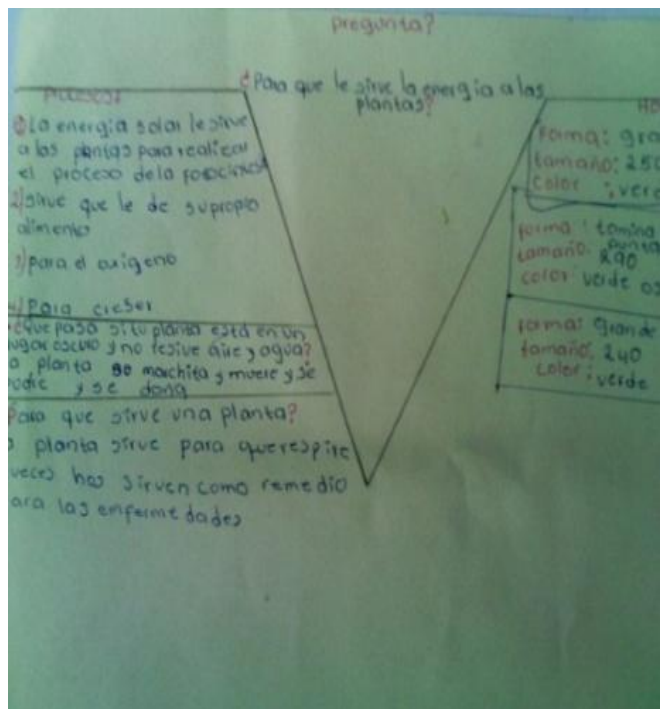 pregunta?
¿Para que le sirve la energia a las
plantas?
1) La energia solar le sirve
a las plantas para realizar
el proceso de la
2) sirve que le de su propio
alimento
3) para el oxigeno
4) Para creser
¿que pasa si tu planta está en un
lugar oscuro y no resive aire y agua?
a planta se marchita y muere y se
pudre y se dana
Para que sirve una planta?
a planta sirve para que respire
veces nos sirven como remedio
ara las enfermedades
Forma: gra
tamaño: 250
color : verd
forma : lamina
punta
tamaño. 290
color: verde os
forma: grande
tamaño: 240
color: verde